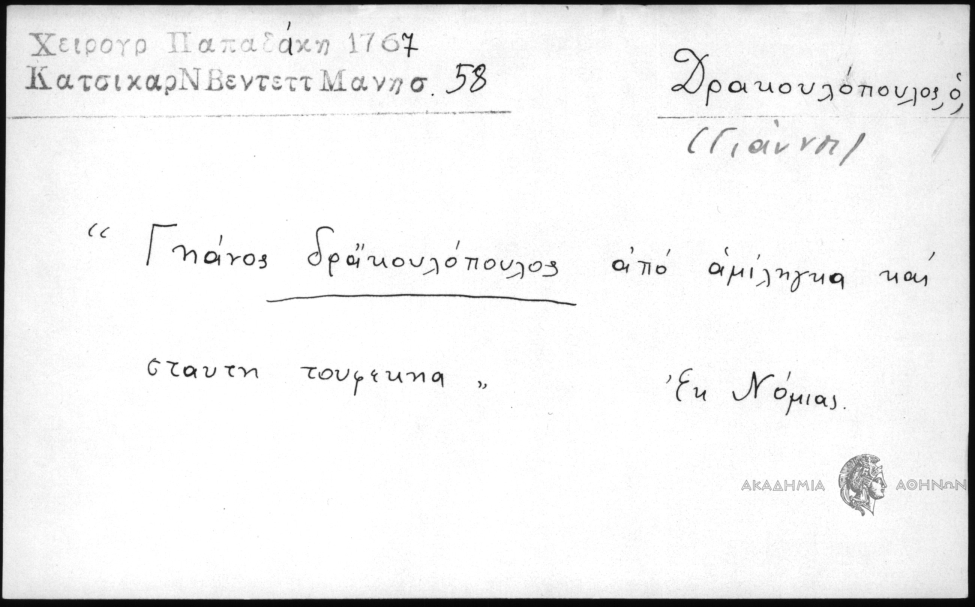 Χειρογρ Παπαδάκη 1767
ΚατσικαρΝΒεντεττΜανησ. 58
Δρακουλόπουλος, ὁ,
(Γιάννη)
“ Γηάνος δράκουλόπουλος ἀπό ἀμίληγκα καί
σταυτη τουφεκηα „ Ἐκ Νόμιας.
ΑΚΑΔΗΜΙΑ ΑΘΗΝΩΝ